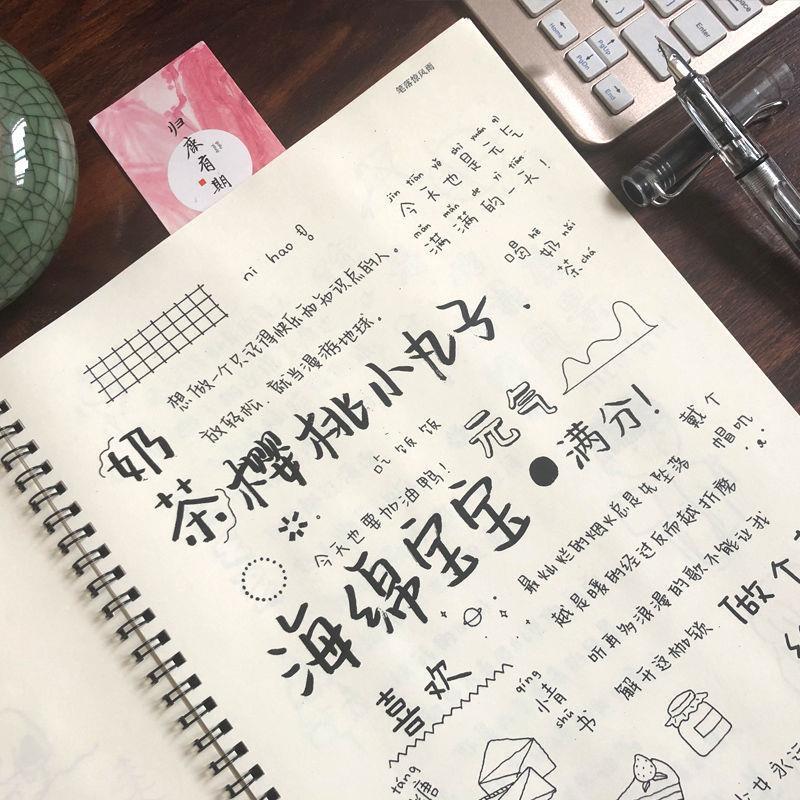 笔落惊风雨
归
床
有
期
jīn tiān yě shì yuán qì
今天也是元气
mǎn mǎn de yì tiān
满满的一天!
ni hao
hē nǎi
喝奶
茶 chá
想做一个只记得快乐而知识点的人。
放轻松,就当漫游地球。
樱桃小丸子.
奶
茶
吃饭饭
元气
满分!
戴个
帽叽
今天也要加油鸭!
海绵宝宝
最灿烂的烟火总是先坠落
越是暖的经过反而越折磨
听再多浪漫的歌不能让我
解开这枷锁
做个
喜欢
qíng
情
shū
书
táng
唐
少女永远
Home
PgUp
PgDn
End
Enter